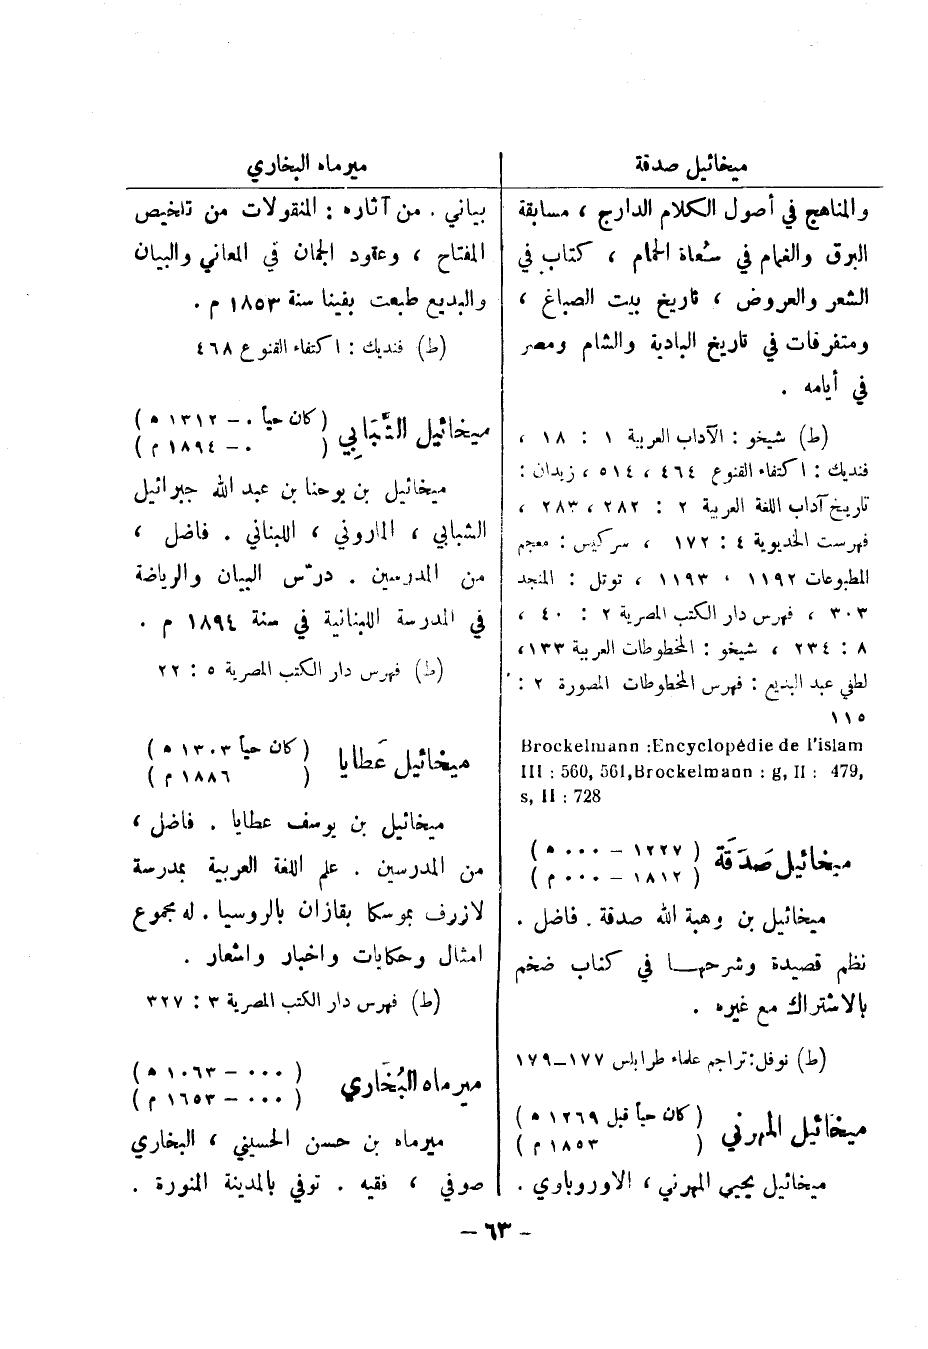 ميخائيل صدقة
والمناهج في أصول الكلام الدارج ، مسابقة
البرق والغمام في سُعاة الحمام ، كتاب في
الشعر والعروض ، تاريخ بيت الصباغ ،
ومتفرقات في تاريخ البادية والشام ومصر
في أيامه .
(ط) شيخو : الآداب العربية ١ : ١٨ ،
فنديك : اكتفاء القنوع ٤٦٤ ، ٥١٤ ، زيدان :
تاريخ آداب اللغة العربية ٢ : ٢٨٢ ، ٢٨٣ ،
فهرست الخديوية ٤ : ١٧٢ ، سركيس : معجم
المطبوعات ١١٩٢ ، ١١٩٣ ، توتل : المنجد
٣٠٣ ، فهرس دار الكتب المصرية ٢ : ٤٠ ،
٨ : ٢٣٤ ، شيخو : المخطوطات العربية ١٣٣،
لطفي عبد البديع : فهرس المخطوطات المصورة ٢ :
١١٥
Brockelmann :Encyclopédie de l'islam
III : 560, 561,Brockelmann : g, II : 479,
s, II : 728
ميخائيل صَدَقَة ( ١٢٢٧ – ٠٠٠ ه )
( ١٨١٢ – ٠٠٠ م )
ميخائيل بن وهبة الله صدقة . فاضل .
نظم قصيدة وشرحها في كتاب ضخم
بالاشتراك مع غيره .
(ط) نوفل: تراجم علماء طرابلس ١٧٧–١٧٩
ميخائيل المهرني ( كان حياً قبل ١٢٦٩ ه )
( ١٨٥٣ م )
ميخائيل يحيى المهرني ، الاوروباوي .
ميرماه البخاري
بياني . من آثاره : المنقولات من تلخيص
المفتاح ، وعقود الجمان في المعاني والبيان
والبديع طبعت بفينا سنة ١٨٥٣ م .
(ط) فنديك : اكتفاء القنوع ٤٦٨
ميخائيل الشَّبَابِي ( كان حياً ٠ – ١٣١٢ ه )
( ٠ – ١٨٩٤ م )
ميخائيل بن يوحنا بن عبد الله جبرائيل
الشبابي ، الماروني ، اللبناني . فاضل ،
من المدرسين . درّس البيان والرياضة
في المدرسة اللبنانية في سنة ١٨٩٤ م .
(ط) فهرس دار الكتب المصرية ٥ : ٢٢
ميخائيل عَطايا ( كان حياً ١٣٠٣ ه )
( ١٨٨٦ م )
ميخائيل بن يوسف عطايا . فاضل ،
من المدرسين . علم اللغة العربية بمدرسة
لازرف بموسكا بقازان بالروسيا . له مجموع
امثال وحكايات واخبار واشعار .
(ط) فهرس دار الكتب المصرية ٣ : ٣٢٧
ميرماه البُخَاري ( ٠٠٠ – ١٠٦٣ ه )
( ٠٠٠ – ١٦٥٣ م )
ميرماه بن حسن الحسيني ، البخاري
صوفي ، فقيه . توفي بالمدينة المنورة .
– ٦٣ –